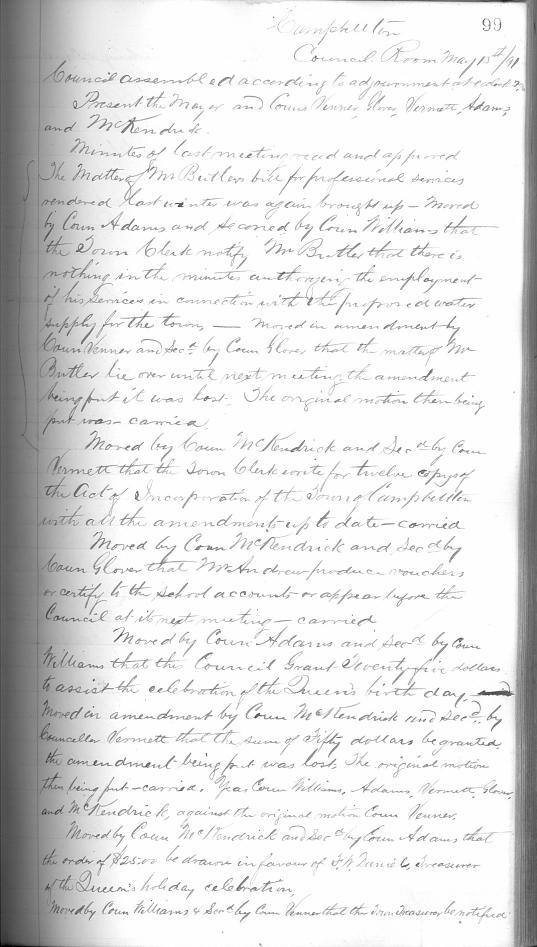 99
Campbellton
Council Room May 15th/91
Council assembled according to adjournment at
Present the Mayor and Couns Venner, Glover, Vermett, Adams
and McKendrick.
Minutes of last meeting read and approved
The Matter of Mr Butlers bill for professional services
rendered last winter was again brought up - Moved
by Coun Adams and seconed by Coun Williams that
the Town Clerk notify Mr Butler that there is
nothing in the minutes authorizing the employment
of his services in connection with the proposed water
supply for the town, — Moved in amendment by
Coun Venner and Secd by Coun Glover that the matter of Mr
Butler lie over until next meeting, the amendment
being put it was lost. The original motion then being
put was - carried.
Moved by Coun McKendrick and Secd by Coun
Vermett that the Town Clerk write for twelve copys of
the Act of Incorporation of the Town of Campbellton
with all the amendments up to date - carried
Moved by Coun McKendrick and Secd by
Coun Glover that Mr Andrew produce vouchers
or certify to the school accounts or appear before the
Council at its next meeting - carried
Moved by Coun Adams and Secd by Coun
Williams that the Council Grant Seventy five dollars
to assist the celebration of the Queen's birth day,
Moved in amendment by Coun McKendrick and Secd by
Councellor Vermett that the sum of Fifty dollars be granted,
the amendment being put was lost. The original motion
then being put - carried. Yeas Coun Williams, Adams, Vermett, Glover,
and McKendrick, against the original motion Coun Venner.
Moved by Coun McKendrick and Secd by Coun Adams that
the order of $25.00 be drawn in favour of Treasurer
of the Queen's holiday celebration,
Moved by Coun Williams & Secd by Coun Venner that the Town Treasurer be notified